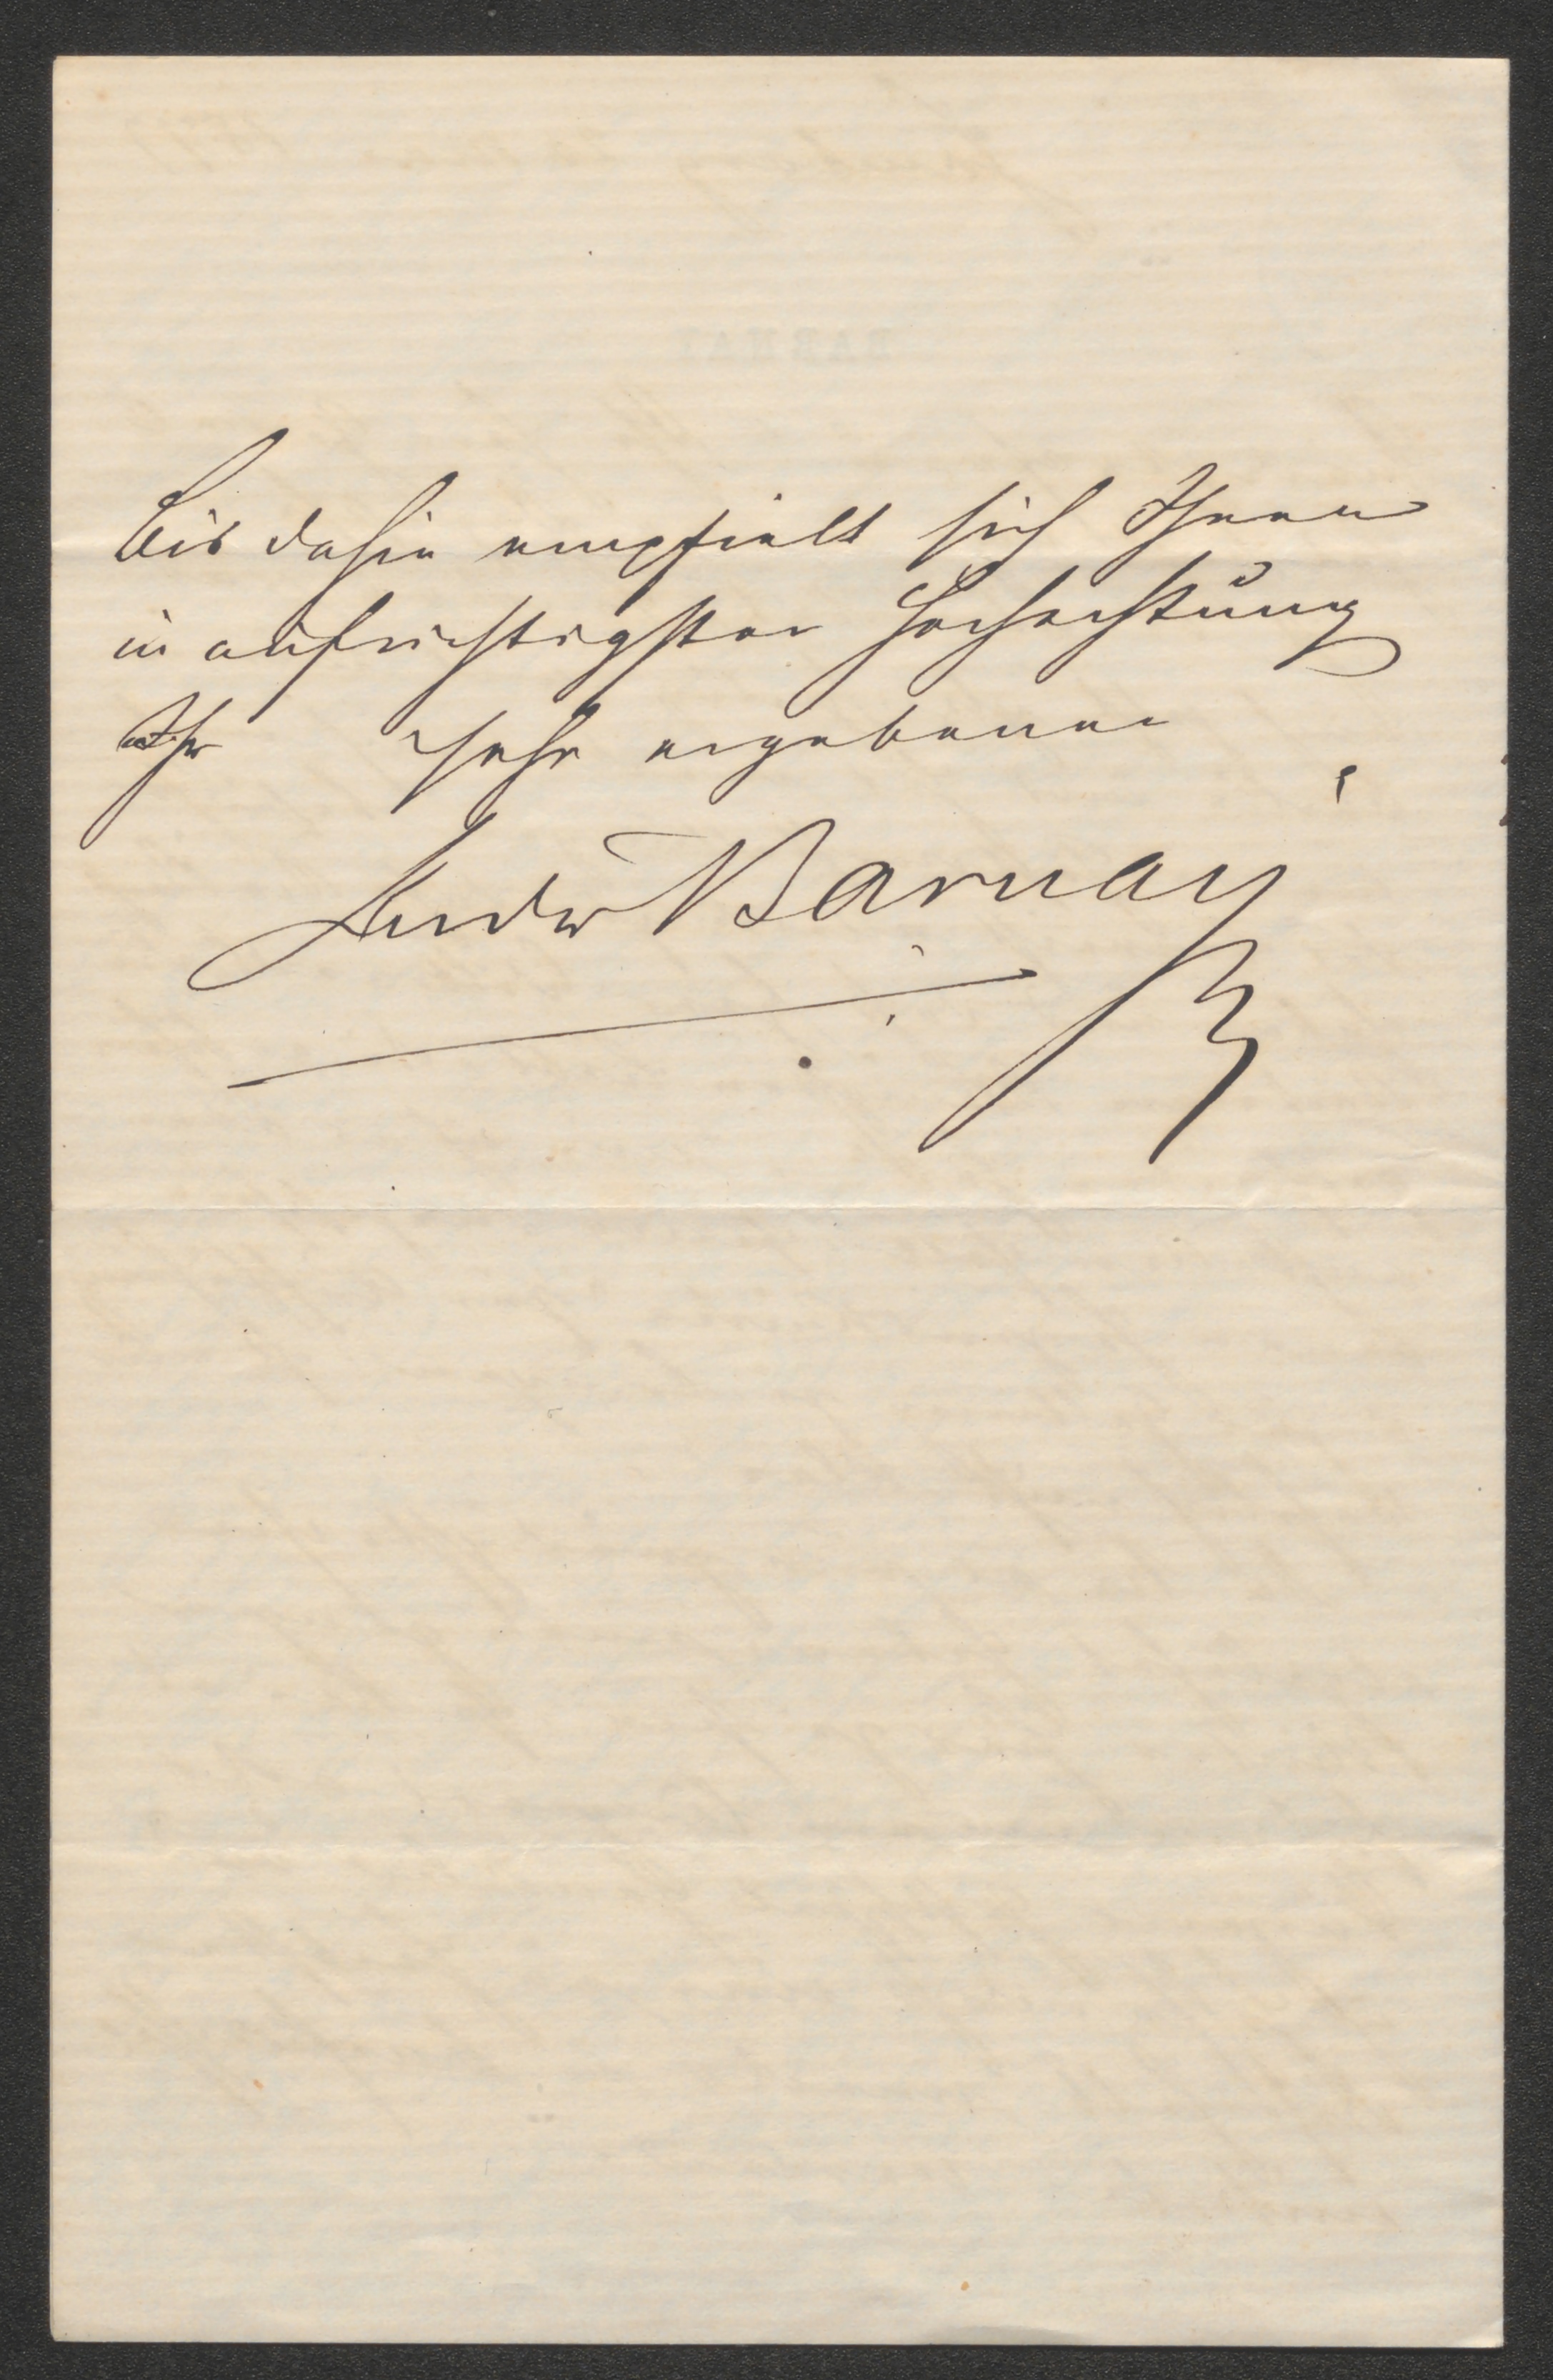 Bis dahin empfielt sich Ihnen
in aufrichtigster Hochachtung
Ihr sehr ergebener
Ludw Barnay